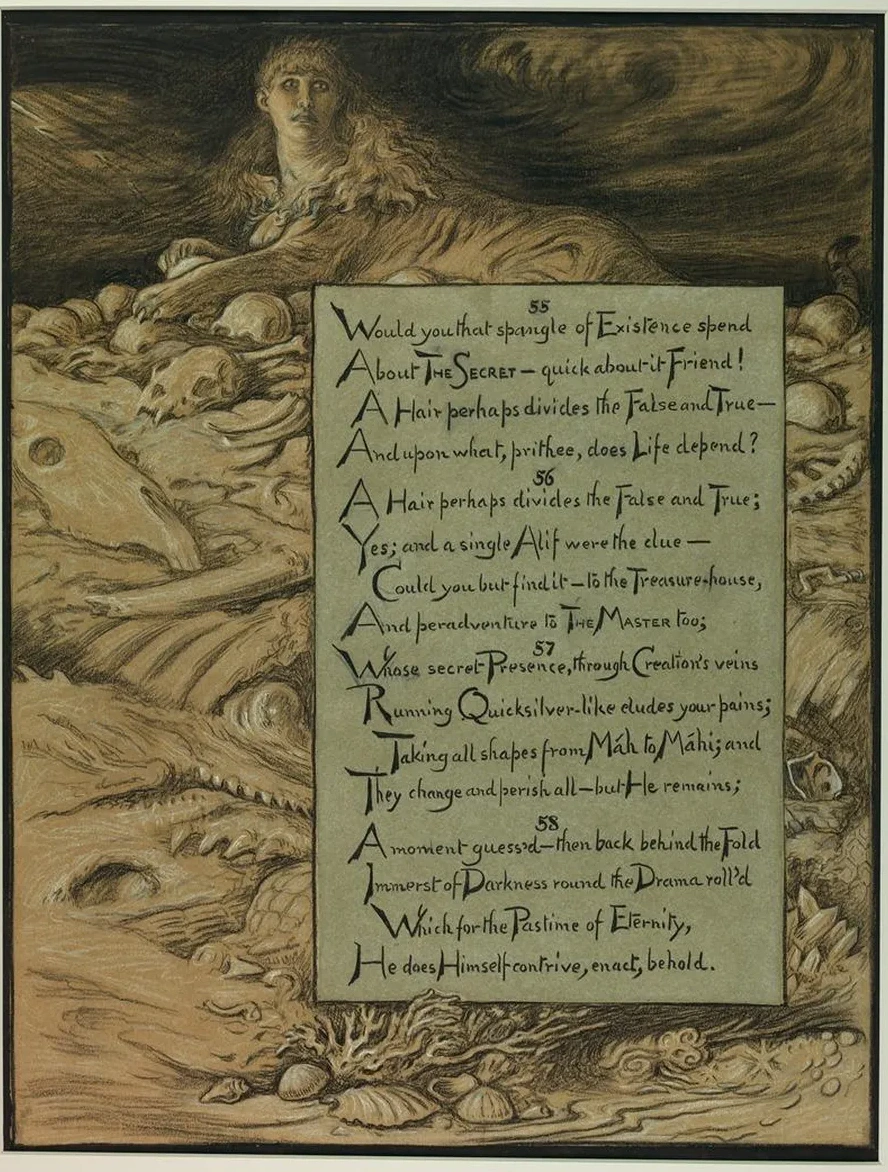 55
Would you that spangle of Existence spend
About THE SECRET — quick about it Friend!
A Hair perhaps divides the False and True—
And upon what, prithee, does Life depend?
56
A Hair perhaps divides the False and True;
Yes; and a single Alif were the clue —
Could you but find it — to the Treasure-house,
And peradventure to THE MASTER too;
57
Whose secret Presence, through Creation's veins
Running Quicksilver-like eludes your pains;
Taking all shapes from Máh to Máhi; and
They change and perish all — but He remains;
58
A moment guess'd — then back behind the Fold
Immerst of Darkness round the Drama roll'd
Which for the Pastime of Eternity,
He does Himself contrive, enact, behold.